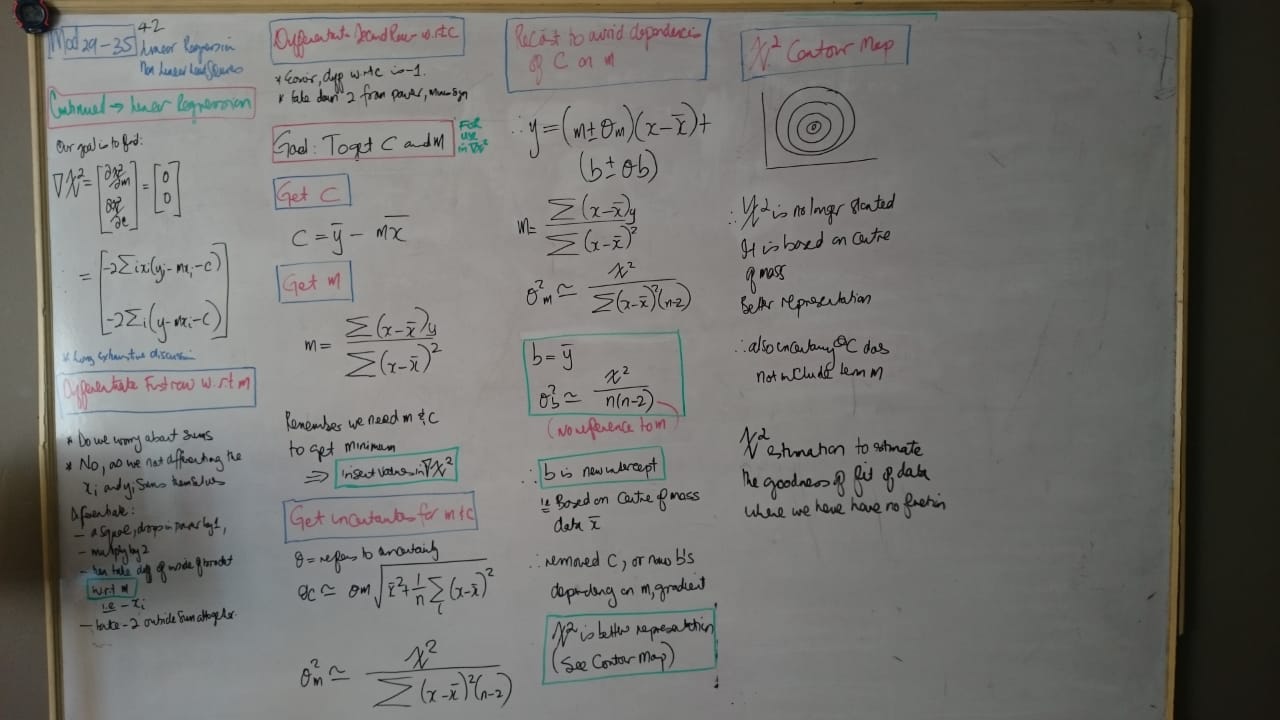 Mod 29-35 42
Linear Regression
Non Linear Least Squares
Continued → Linear Regression
Our goal is to find:
∇χ² = [∂χ²/∂m ∂χ²/∂c] = [0 0]
= [-2Σi xi(yi - mxi - c)
-2Σi(y - mxi - c)]
* Long exhaustive discussion
Differentiate First row w.r.t m
* Do we worry about sums
* No, as we not affecting the
xi and yi sums themselves
Differentiate:
- a square, drops in power by 1,
- multiply by 2
- then take diff of inside of bracket
w.r.t m
i.e - xi
- take -2 outside sum altogether.
Differentiate Second Row w.r.t C
* Easier, diff w.r.t c is -1.
* take down 2 from power, minus sign
Goal: To get C and M
FOR
USE
in ∇χ²
Get C
C = ȳ - m x̄
Get M
m = Σ(x-x̄)y / Σ(x-x̄)²
Remember we need m & c
to get minimum
⇒ insert values in ∇χ²
Get uncertainties for m & c
θ = refers to uncertainty
θc ≃ θm √(x̄² + 1/n Σi (x-x̄)²
θ²m ≃ χ² / Σ(x-x̄)²(n-2)
Recast to avoid dependencies
of C on m
∴ y = (m ± θm)(x - x̄) +
(b ± θb)
m = Σ(x-x̄)y / Σ(x-x̄)²
θ²m ≃ χ² / Σ(x-x̄)²(n-2)
b = ȳ
θ²b ≃ χ² / n(n-2)
(No reference to m)
∴ b is new intercept
i.e Based on Centre of mass
data x̄
∴ removed C, or now b's
depending on m, gradient
χ² is better representation
(See Contour Map)
χ² Contour Map
∴ χ² is no longer slanted
It is based on Centre
of mass
Better representation
∴ also uncertainty θC does
not include term M
χ² estimation to estimate
the goodness of fit of data
where we have have no function